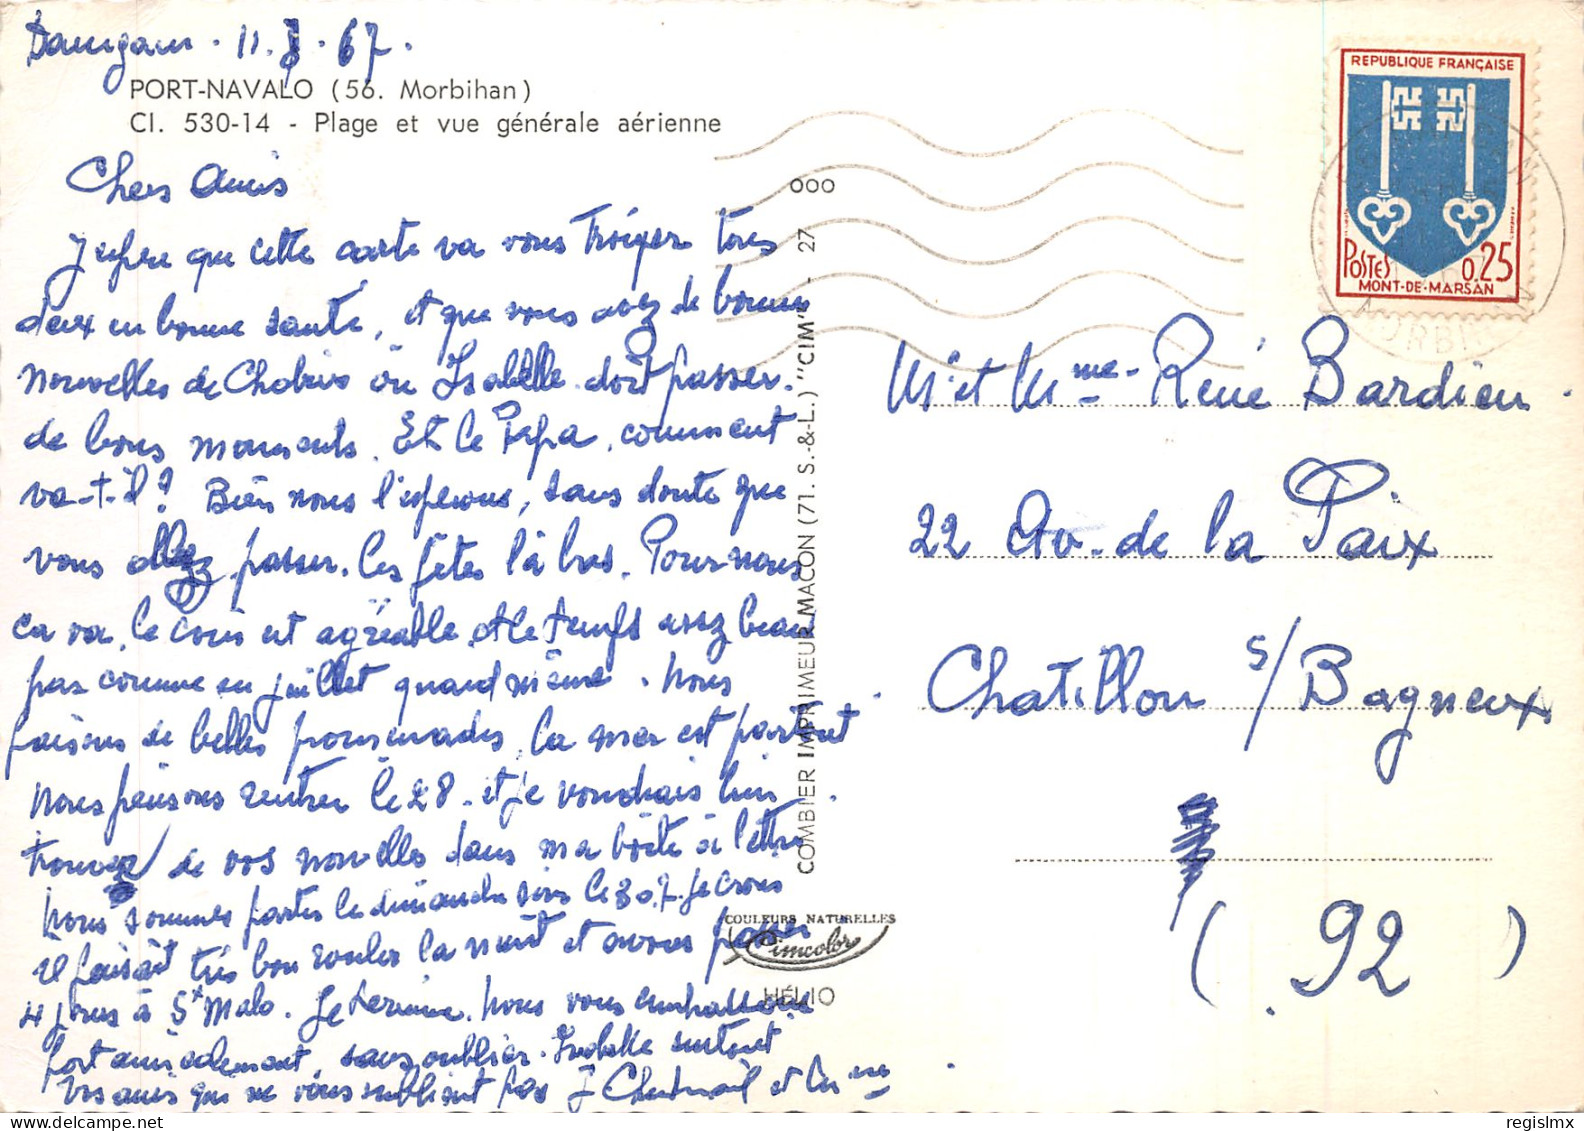 Damgan . 11.8.67.
PORT-NAVALO (56. Morbihan)
Cl. 530-14 - Plage et vue générale aérienne
Chers Amis
J'espère que cette carte va vous trouver tous
deux en bonne santé, et que vous avez de bonnes
nouvelles de où Isabelle doit passer
de bons moments. Et le Papa, comment
va-t-il? Bien nous l'espérons, sans doute que
vous allez passer les fêtes là bas. Pour nous
ça va, le coin est agréable et le temps assez beau
pas comme en juillet quand même. Nous
faisons de belles promenades, la mer est partout
Nous pensons rentrer le 28. et je voudrais bien
trouver de vos nouvelles dans ma boîte à lettre
Nous sommes partis le dimanche soir le 30.7. je crois
il faisait très bon rouler la nuit et avons passé
4 jours à St Malo. Je termine. Nous vous embrassons
fort amicalement, sans oublier Isabelle surtout
Vos amis qui ne vous oublient pas J et
COMBIER IMPRIMEUR MACON (71. S.-&-L.) "CIM" - 27
OOO
COULEURS NATURELLES
Cimcolor
HÉLIO
REPUBLIQUE FRANÇAISE
POSTES 0,25
MONT-DE-MARSAN
MORBIHAN
Mr et Mme René Bardieu
22 Av. de la Paix
Chatillon s/ Bagneux
(92)
regislmx